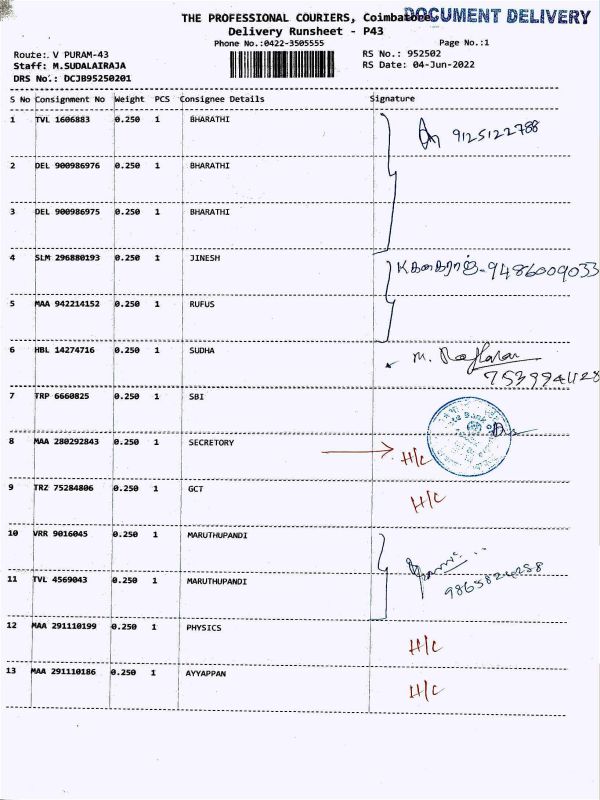 THE PROFESSIONAL COURIERS, Coimbatore
DOCUMENT DELIVERY
Delivery Runsheet - P43
Phone No.:0422-3505555
Page No.:1
Route: V PURAM-43
RS No.: 952502
Staff: M.SUDALAIRAJA
RS Date: 04-Jun-2022
DRS No.: DCJB95250201
S No Consignment No Weight PCS Consignee Details Signature
1 TVL 1606883 0.250 1 BHARATHI
9125122788
2 DEL 900986976 0.250 1 BHARATHI
3 DEL 900986975 0.250 1 BHARATHI
4 SLM 296880193 0.250 1 JINESH
கனகராஜ் - 9486009033
5 MAA 942214152 0.250 1 RUFUS
6 HBL 14274716 0.250 1 SUDHA
M.
7 TRP 6660825 0.250 1 SBI
8 MAA 280292843 0.250 1 SECRETORY H/C
9 TRZ 75284806 0.250 1 GCT H/C
10 VRR 9016045 0.250 1 MARUTHUPANDI
11 TVL 4569043 0.250 1 MARUTHUPANDI
9865824258
12 MAA 291110199 0.250 1 PHYSICS H/C
13 MAA 291110186 0.250 1 AYYAPPAN H/C